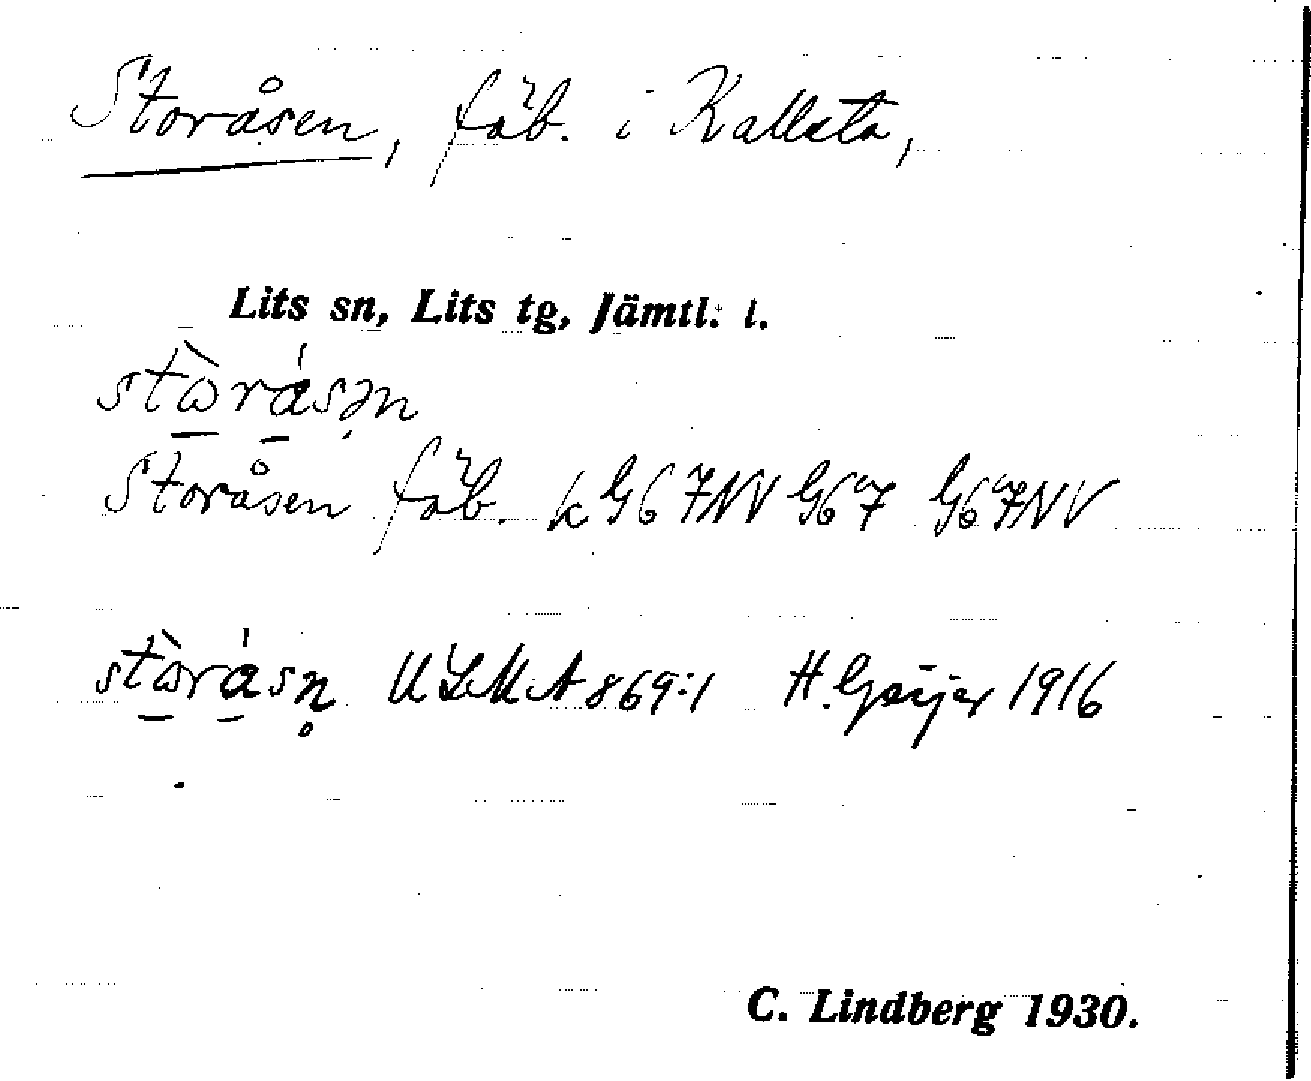 Storåsen, fäb. i Kallsta,
Lits sn, Lits tg, Jämtl. l.
stɷ̀rásən
Storåsen fäb. k G67NV G67 G67NV
stɷ̀rásn̥ ULMA 869:1 H. Geijer 1916
C. Lindberg 1930.